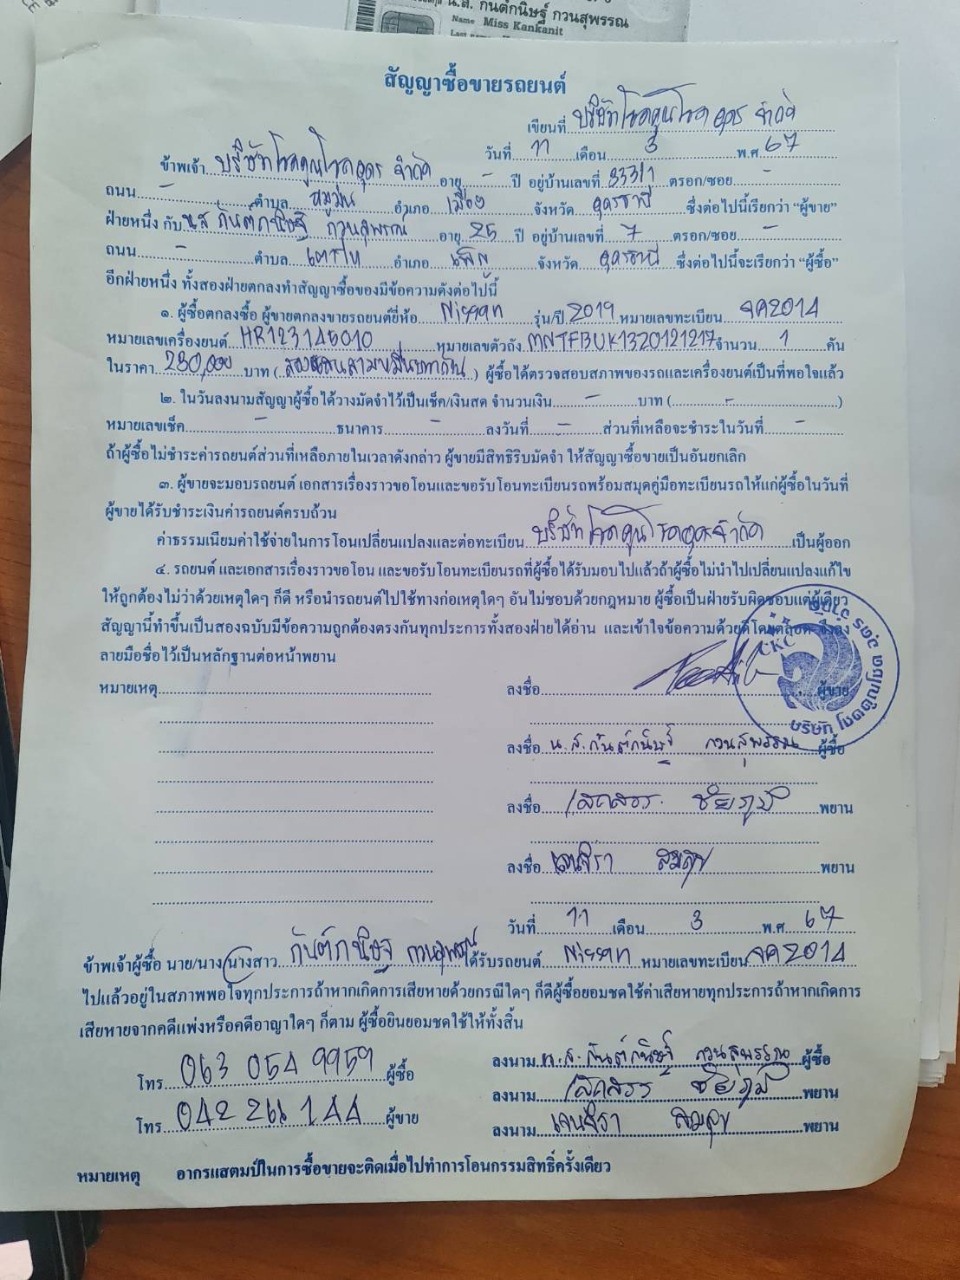 น.ส. กันต์กนิษฐ์ กวนสุพรรณ
Name Miss Kankanit
สัญญาซื้อขายรถยนต์
เขียนที่ บริษัท โชคคูนโชคอุดร จำกัด
วันที่ 11 เดือน 3 พ.ศ 67
ข้าพเจ้า บริษัท โชคคูนโชคอุดร จำกัด อายุ - ปี อยู่บ้านเลขที่ 333/1 ตรอก/ซอย -
ถนน - ตำบล หมูม่น อำเภอ เมือง จังหวัด อุดรธานี ซึ่งต่อไปนี้เรียกว่า "ผู้ขาย"
ฝ่ายหนึ่ง กับ น.ส กันต์กนิษฐ์ กวนสุพรรณ อายุ 25 ปี อยู่บ้านเลขที่ 7 ตรอก/ซอย -
ถนน - ตำบล เตาไห อำเภอ เพ็ญ จังหวัด อุดรธานี ซึ่งต่อไปนี้จะเรียกว่า "ผู้ซื้อ"
อีกฝ่ายหนึ่ง ทั้งสองฝ่ายตกลงทำสัญญาซื้อของมีข้อความดังต่อไปนี้
๑. ผู้ซื้อตกลงซื้อ ผู้ขายตกลงขายรถยนต์ยี่ห้อ Nissan รุ่น/ปี 2019 หมายเลขทะเบียน ขค2014
หมายเลขเครื่องยนต์ HR123145010 หมายเลขตัวถัง MNTFBUK13Z0121217 จำนวน 1 คัน
ในราคา 230,000 บาท ( สองแสนสามหมื่นบาทถ้วน ) ผู้ซื้อได้ตรวจสอบสภาพของรถและเครื่องยนต์เป็นที่พอใจแล้ว
๒. ในวันลงนามสัญญาผู้ซื้อได้วางมัดจำไว้เป็นเช็ค/เงินสด จำนวนเงิน - บาท ( - )
หมายเลขเช็ค - ธนาคาร - ลงวันที่ - ส่วนที่เหลือจะชำระในวันที่ -
ถ้าผู้ซื้อไม่ชำระค่ารถยนต์ส่วนที่เหลือภายในเวลาดังกล่าว ผู้ขายมีสิทธิริบมัดจำ ให้สัญญาซื้อขายเป็นอันยกเลิก
๓. ผู้ขายจะมอบรถยนต์ เอกสารเรื่องราวขอโอนและขอรับโอนทะเบียนรถพร้อมสมุดคู่มือทะเบียนรถให้แก่ผู้ซื้อในวันที่
ผู้ขายได้รับชำระเงินค่ารถยนต์ครบถ้วน
ค่าธรรมเนียมค่าใช้จ่ายในการโอนเปลี่ยนแปลงและต่อทะเบียน บริษัท โชคคูนโชคอุดรจำกัด เป็นผู้ออก
๔. รถยนต์ และเอกสารเรื่องราวขอโอน และขอรับโอนทะเบียนรถที่ผู้ซื้อได้รับมอบไปแล้วถ้าผู้ซื้อไม่นำไปเปลี่ยนแปลงแก้ไข
ให้ถูกต้องไม่ว่าด้วยเหตุใดๆ ก็ดี หรือนำรถยนต์ไปใช้ทางก่อเหตุใดๆ อันไม่ชอบด้วยกฎหมาย ผู้ซื้อเป็นฝ่ายรับผิดชอบแต่ผู้เดียว
สัญญานี้ทำขึ้นเป็นสองฉบับมีข้อความถูกต้องตรงกันทุกประการทั้งสองฝ่ายได้อ่าน และเข้าใจข้อความด้วยดีโดยตลอด จึงลง
ลายมือชื่อไว้เป็นหลักฐานต่อหน้าพยาน
CKC
หมายเหตุ
ลงชื่อ ผู้ขาย
ลงชื่อ น.ส.กันต์กนิษฐ์ กวนสุพรรณ ผู้ซื้อ
ลงชื่อ ชัยภูมิ พยาน
ลงชื่อ เจนจิรา พยาน
วันที่ 11 เดือน 3 พ.ศ 67
ข้าพเจ้าผู้ซื้อ นาย/นาง/นางสาว กันต์กนิษฐ์ กวนสุพรรณ ได้รับรถยนต์ Nissan หมายเลขทะเบียน ขค2014
ไปแล้วอยู่ในสภาพพอใจทุกประการถ้าหากเกิดการเสียหายด้วยกรณีใดๆ ก็ดีผู้ซื้อยอมชดใช้ค่าเสียหายทุกประการถ้าหากเกิดการ
เสียหายจากคดีแพ่งหรือคดีอาญาใดๆ ก็ตาม ผู้ซื้อยินยอมชดใช้ให้ทั้งสิ้น
โทร 063 054 9959 ผู้ซื้อ
ลงนาม น.ส.กันต์กนิษฐ์ กวนสุพรรณ ผู้ซื้อ
ลงนาม ชัยภูมิ พยาน
โทร 042 266 144 ผู้ขาย
ลงนาม เจนจิรา พยาน
หมายเหตุ อากรแสตมป์ในการซื้อขายจะติดเมื่อไปทำการโอนกรรมสิทธิ์ครั้งเดียว